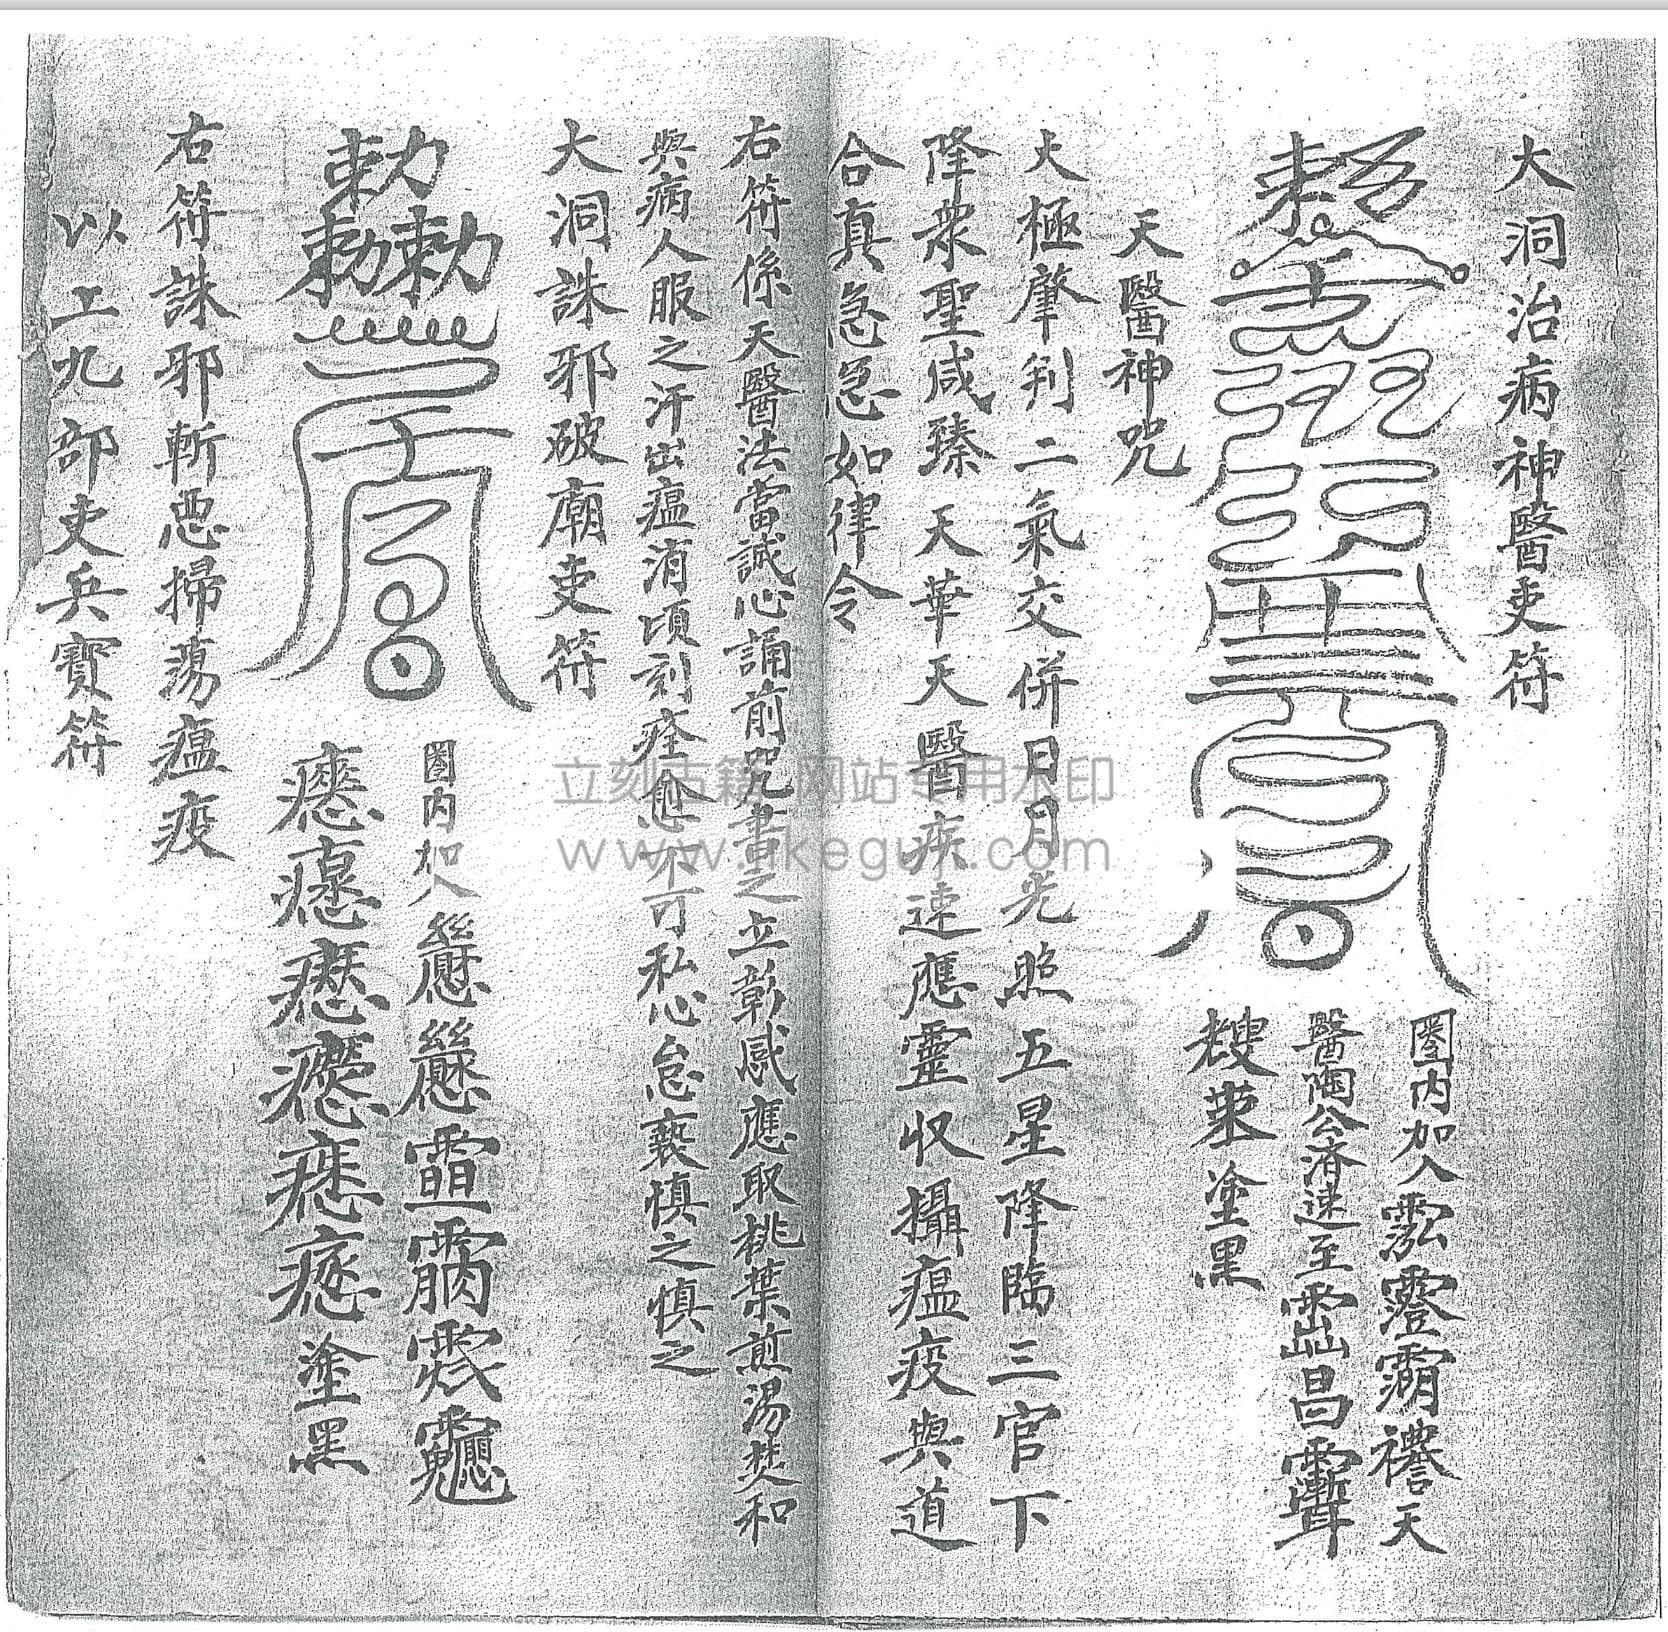 大洞治病神醫吏符
圈内加入
天
醫陶公濟速至
昌
塗黑
天醫神咒
太極肇判二氣交併日月光照五星降臨三官下
降衆聖咸臻天華天醫疾速應靈収攝瘟疫與道
合真急急如律令
右符係天醫法當誠心誦前咒書之立彰感應取桃葉煎湯焚和
與病人服之汗出瘟消頃刻痊愈不可私心怠褻慎之慎之
大洞誅邪破廟吏符
敕
敕敕
圈内加入
塗黑
右符誅邪斬惡掃蕩瘟疫
以上九部吏兵寳符
立刻古籍 网站专用水印
www.likeguji.com